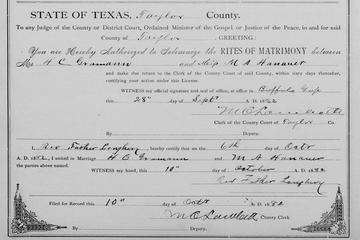 STATE OF TEXAS, Taylor County.
To any Judge of the County or District Court, Ordained Minister of the Gospel or Justice of the Peace, in and for said
County of Taylor GREETING:
You are Hereby Authorized to Solemnize the RITES OF MATRIMONY between
Mr H C Gramann and Miss M A Hanauer
and make due return to the Clerk of the County Court of said County, within sixty days thereafter,
certifying your action under this License.
WITNESS my official signature and seal of office, at Buffalo Gap
this 28" day of Sept A. D. 1882
Clerk of County Court, Taylor Co.
By Deputy.
I, Rev Father Loughery hereby certify that on the 6th day of Octr
A. D. 1882, I united in Marriage H C Gramann and M A Hanauer
the parties above named.
WITNESS my hand, this 10" day of October 1882
Rev Father Loughery
Filed for Record this 10" day of Octr 1882
County Clerk
By Deputy.